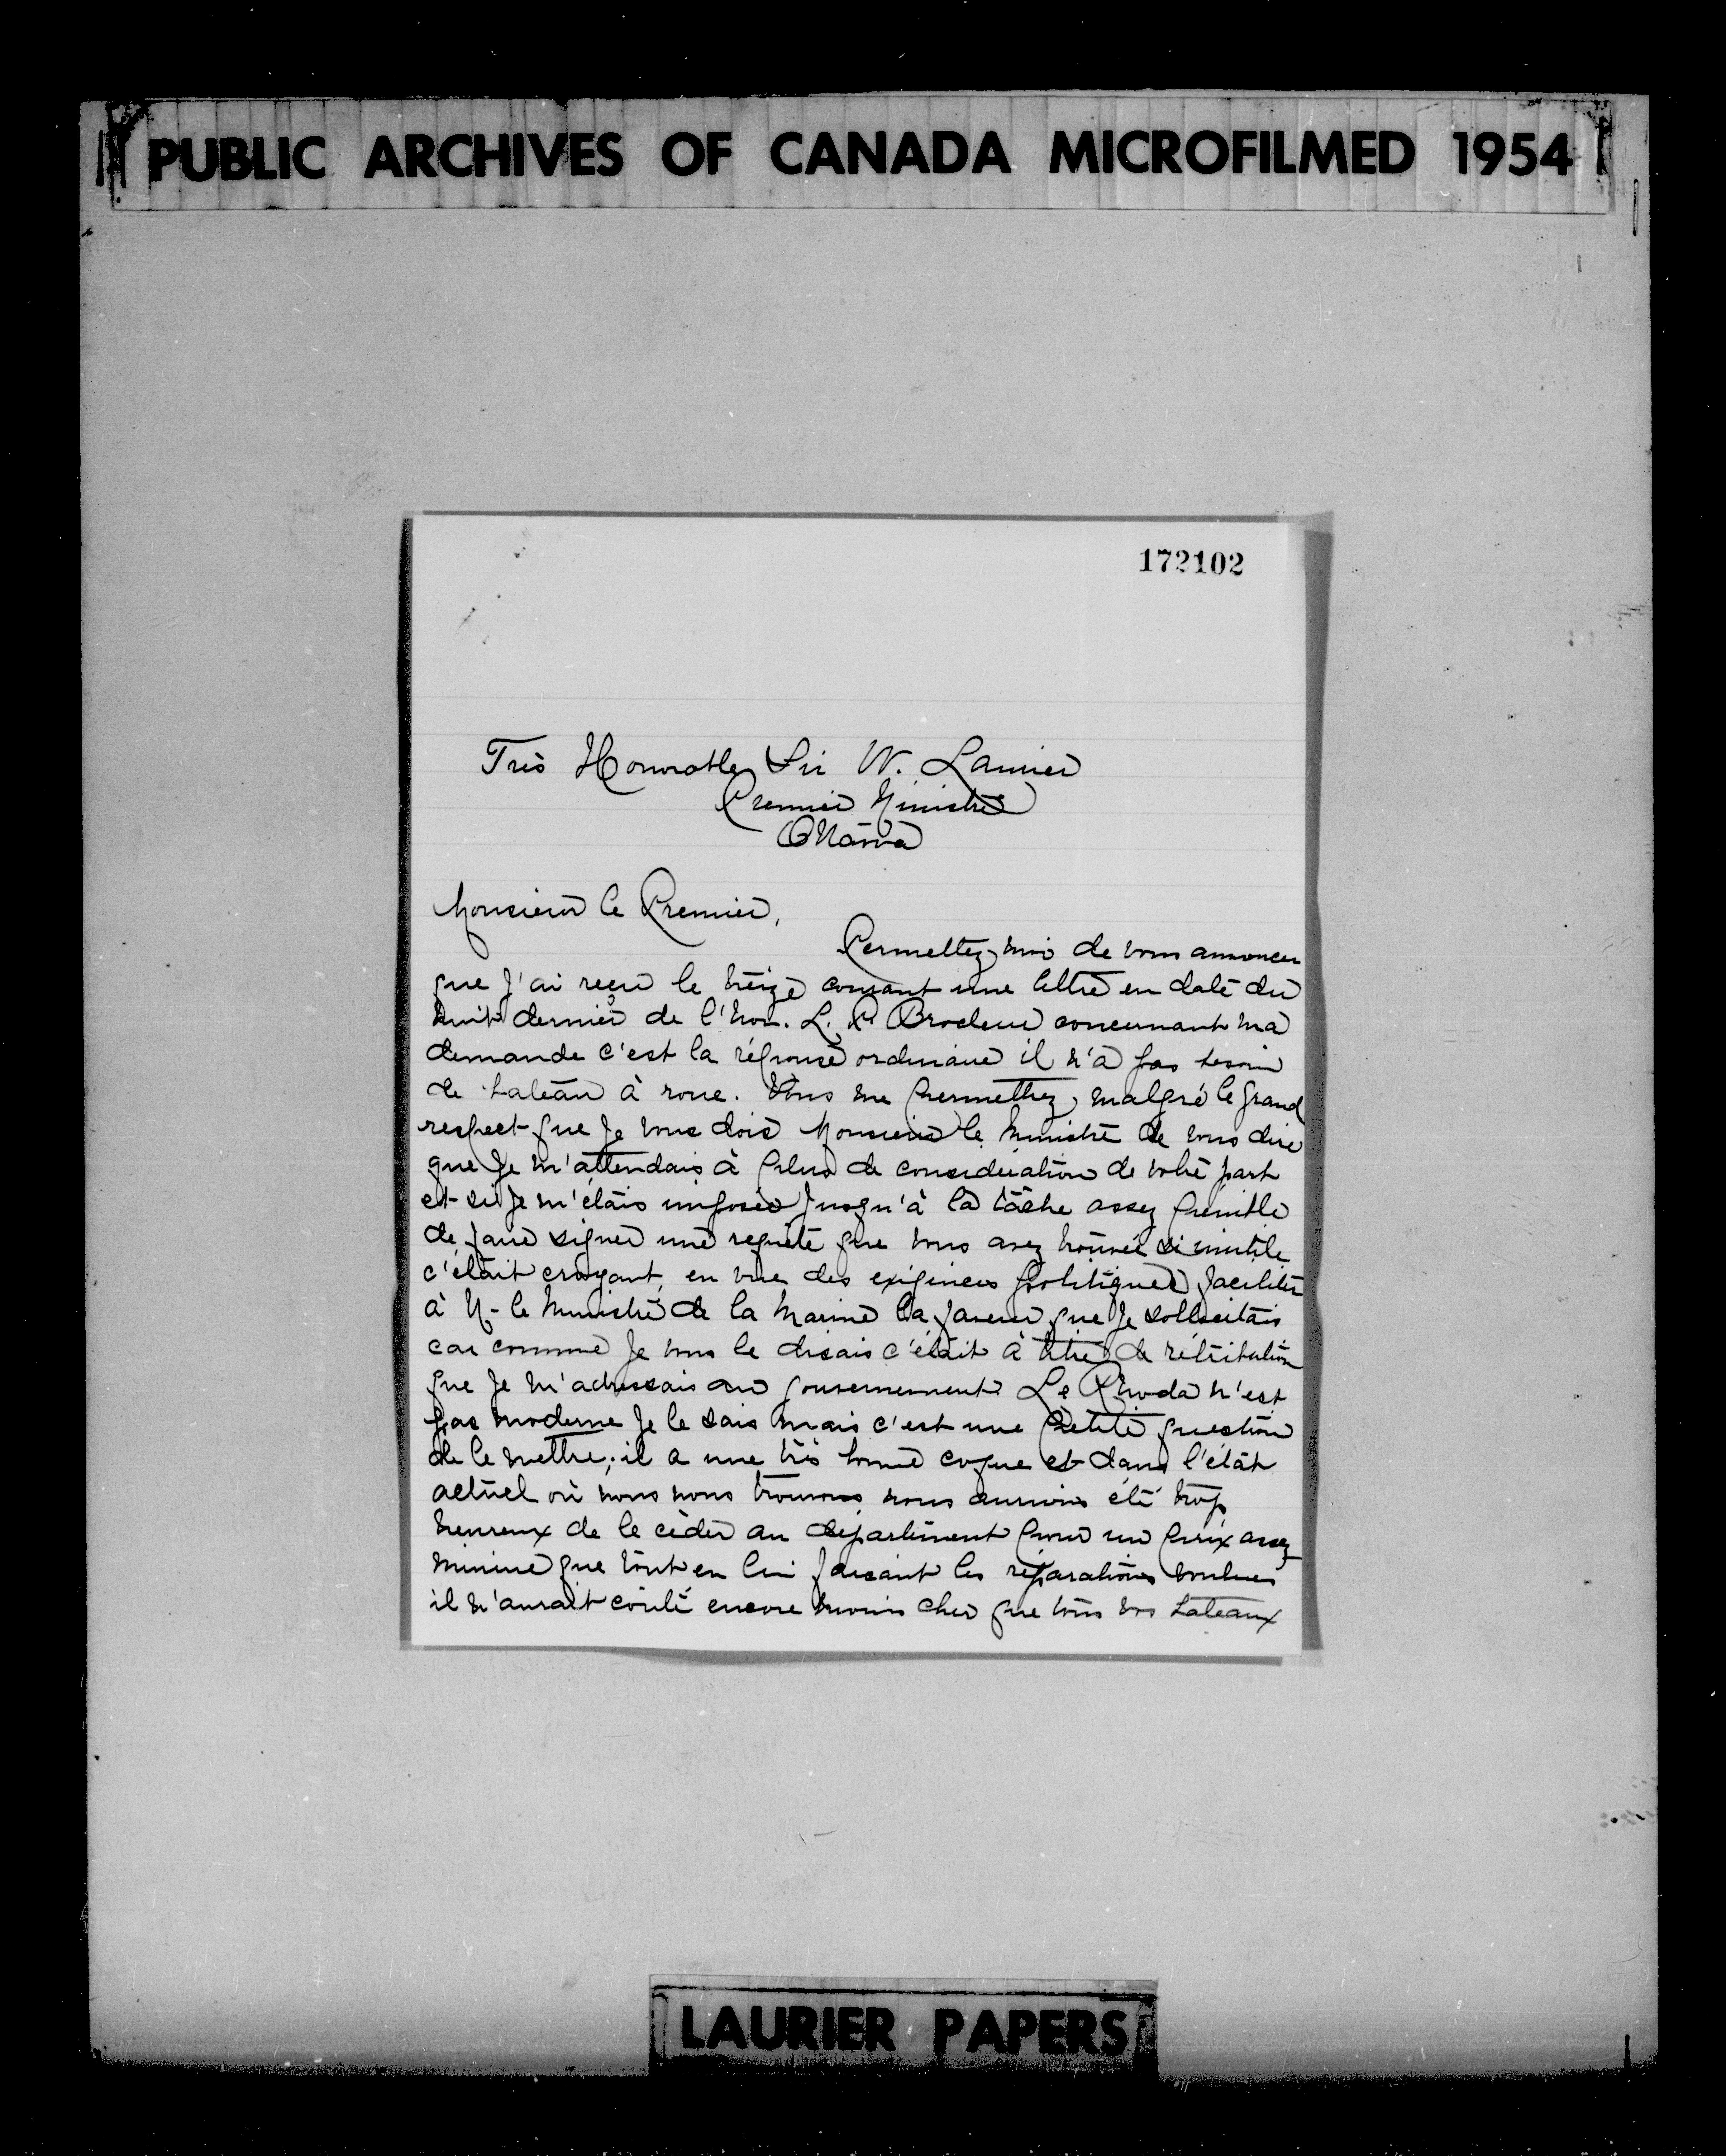 PUBLIC ARCHIVES OF CANADA MICROFILMED 1954
172102
Très Honorable Sir W. Laurier
Premier Ministre
Ottawa
Monsieur le Premier,
Permettez moi de vous annoncer
que J'ai reçu le treize courant une lettre en date du
huit dernier de l'hon. L. P. Brodeur concernant ma
demande c'est la réponse ordinaire il n'a pas besoin
de bateau à roue. Vous me permettrez, malgré le grand
respect que Je vous dois Monsieur le Ministre de vous dire
que Je m'attendais à plus de considération de votre part
et si Je m'étais imposée Jusqu'à la tâche assez pénible
de faire signer une requête que vous avez trouvée si inutile
c'était croyant, en vue des exigences politiques, faciliter
à M. le Ministre de la Marine la faveur que Je sollicitais
car comme Je vous le disais c'était à titre de rétribution
que Je m'adressais au gouvernement. Le Rhoda n'est
pas moderne Je le sais mais c'est une petite question
de le mettre; il a une très bonne coque et dans l'état
actuel où nous nous trouvons nous aurions été trop
heureux de le cèder au département pour un prix assez
minime que tout en lui faisant les réparations voulues
il n'aurait coûté encore moins cher que tous vos bateaux
LAURIER PAPERS